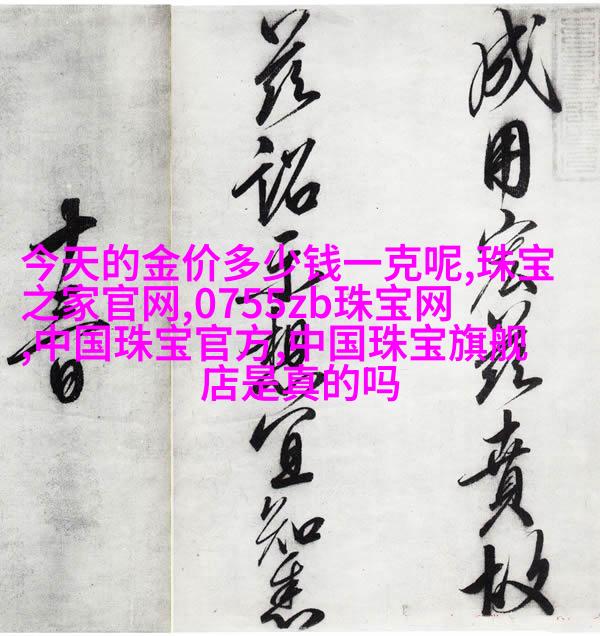 成用宏茲賁故
茲詔示想宜知悉
十日
今天的金价多少钱一克呢,珠宝
之家官网,0755zb珠宝网
,中国珠宝官方,中国珠宝旗舰
店是真的吗